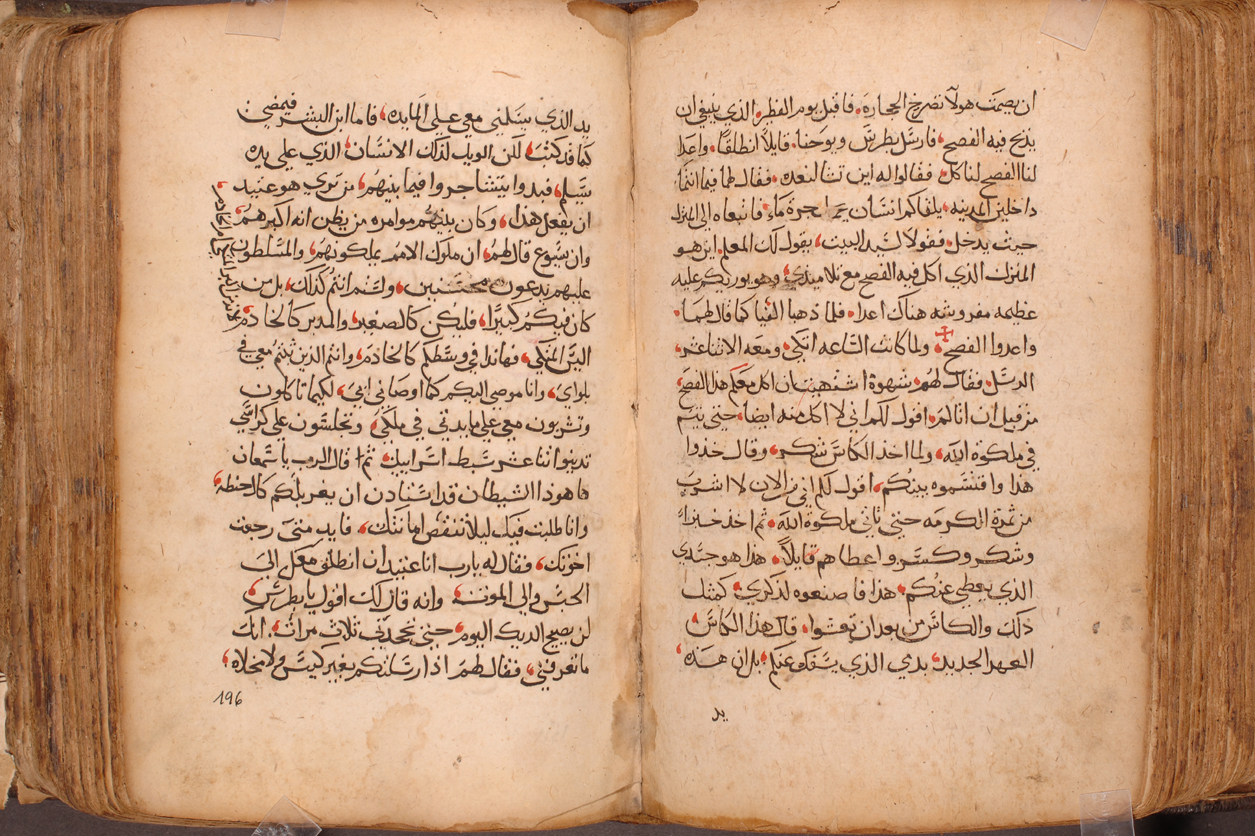 ان يصمت هولا تصرخ الحجاره. فاقبل يوم الفطر الذي ينبغي ان
يذبح فيه الفصح. فارسل بطرس ويوحنا. قايلاً انطلقا. واعدا
لنا الفصح لناكل. فقالوا له اين تشا لنعده. فقال لهما فيما انتما
داخلين المدينه. يلقاكم انسان جرة ماء. فاتبعاه الى المنزل
حيث يدخل. فقولا لسيد البيت. يقول لك المعلم. اين هو
المنزل الذي اكل فيه الفصح مع تلاميذي. وهو يوريكم عليه
عظيمه مفروشه هناك اعدا. فلما ذهبا الفيا كما قال لهما.
واعدوا الفصح. ولما كانت الساعه اتكى. ومعه الاثناعشر.
الرسل. فقال لهم. شهوة اشتهيت ان اكل معكم هذا الفصح.
من قبل ان اتالم. اقول لكم اني لا اكل منه ايضا. حتى يتم
في ملكوة الله. ولما اخذ الكاس شكر. وقال خذوا
هذا واقتسموه بينكم. اقول لكم اني من الان لا اشرب
من ثمرة الكرمه حتى تاتي ملكوة الله. ثم اخذ خبزاً
وشكر وكسر واعطاهم قايلاً. هذا هو جسدي
الذي يعطي عنكم. هذا فاصنعوه لذكري. كمثل
ذلك والكاس من بعد ان تعشوا. قال هذا الكاس
العهد الجديد. بدمي الذي يسفك عنكم. بل ان هذه
يد
يد الذي يسلمني معي على المايده. فاما ابن البشر فيمضي
كما قد كتب. لكن الويل لذلك الانسان الذي على يده
يسلم. فبدوا يتشاجروا فيما بينهم. من ترى هو عتيد
ان يفعل هذا. وكان بينهم موامره من يظن انه اكبرهم.
وان يسوع قال لهم. ان ملوك الامم يملكونهم. والمسلطون
عليهم يدعون محتسنين. ولستم انتم كذلك. بل من
كان فيكم كبيراً. فليكن كالصغير. والمدبر كالخادم.
اليس المتكي. فهانذا في وسطكم كالخادم. وانتم الذين ثبتم معي في
بلواي. وانا موصي اليكم كما اوصاني ابي. لكيما تاكلون
وتشربون معي على مايدتي في ملكي. وتجلسون على كراسي
تدينوا اثنا عشر سبط اسراييل. ثم قال الرب يا سمعان
ها هوذا الشيطان قد استاذن ان يغربلكم كالحنطه.
وانا طلبت فيك ليلا تنقص امانتك. فايد متى رجعت
اخوتك. فقال له يارب انا عتيد ان انطلق معك الى
الحبس والى الموت. وانه قال لك اقول يا بطرس
لن يصيح الديك اليوم. حتى تجحدني ثلاث مرات. انك
ما تعرفني. فقال لهم اذ ارسلتكم بغير كيس ولا مخلاه.
196